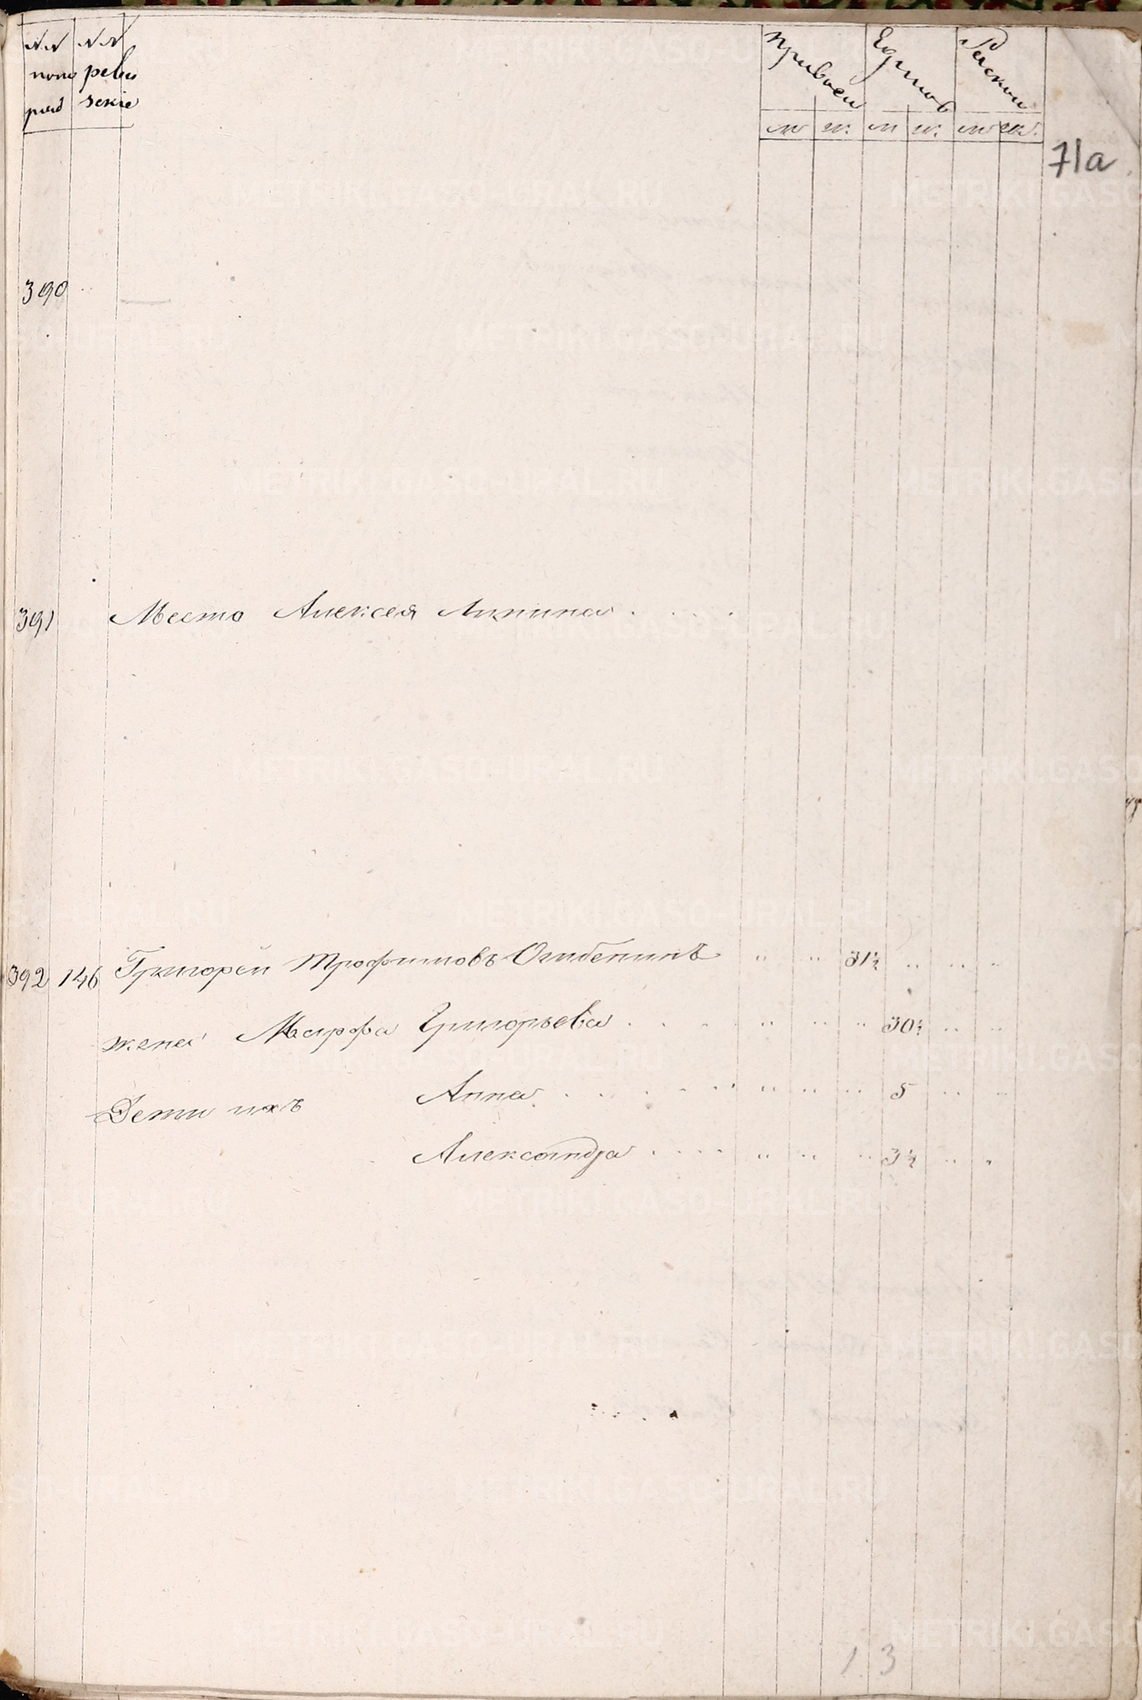 №№ №№
поно реви
ряд зские
Правосл Единов Раскол
м ж. м ж. м ж.
71а
390
391 Место Алексея Ляпина
392 146 Григорей Трофимовъ Огибенинъ 31½
жена Марфа Григорьева 30½
Дети ихъ Анна 5
Александра 3½
1 3
METRIKI.GASO-URAL.RU